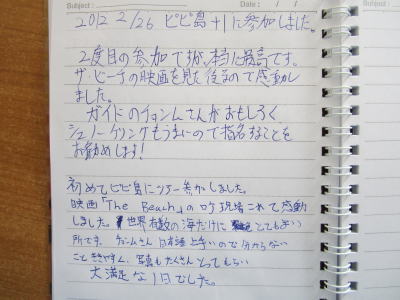 Subject : Date : / /
2012 2/26 ピピ島+1に参加しました。
2度目の参加ですが、本当に最高です。
ザ・ビーチの映画を見た後なので感動し
ました。
ガイドのチョンムさんがおもしろく
シュノーケリングもうまいので指名することを
お勧めします!
初めてピピ島にツアー参加しました。
映画「The Beach」のロケ現場これて感動
しました。世界有数の海だけに とてもよい
所です。チョームさん日本語上手いので分からない
こと きさやすく、写真もたくさんとってもらい
大満足な1日でした。
Subject :